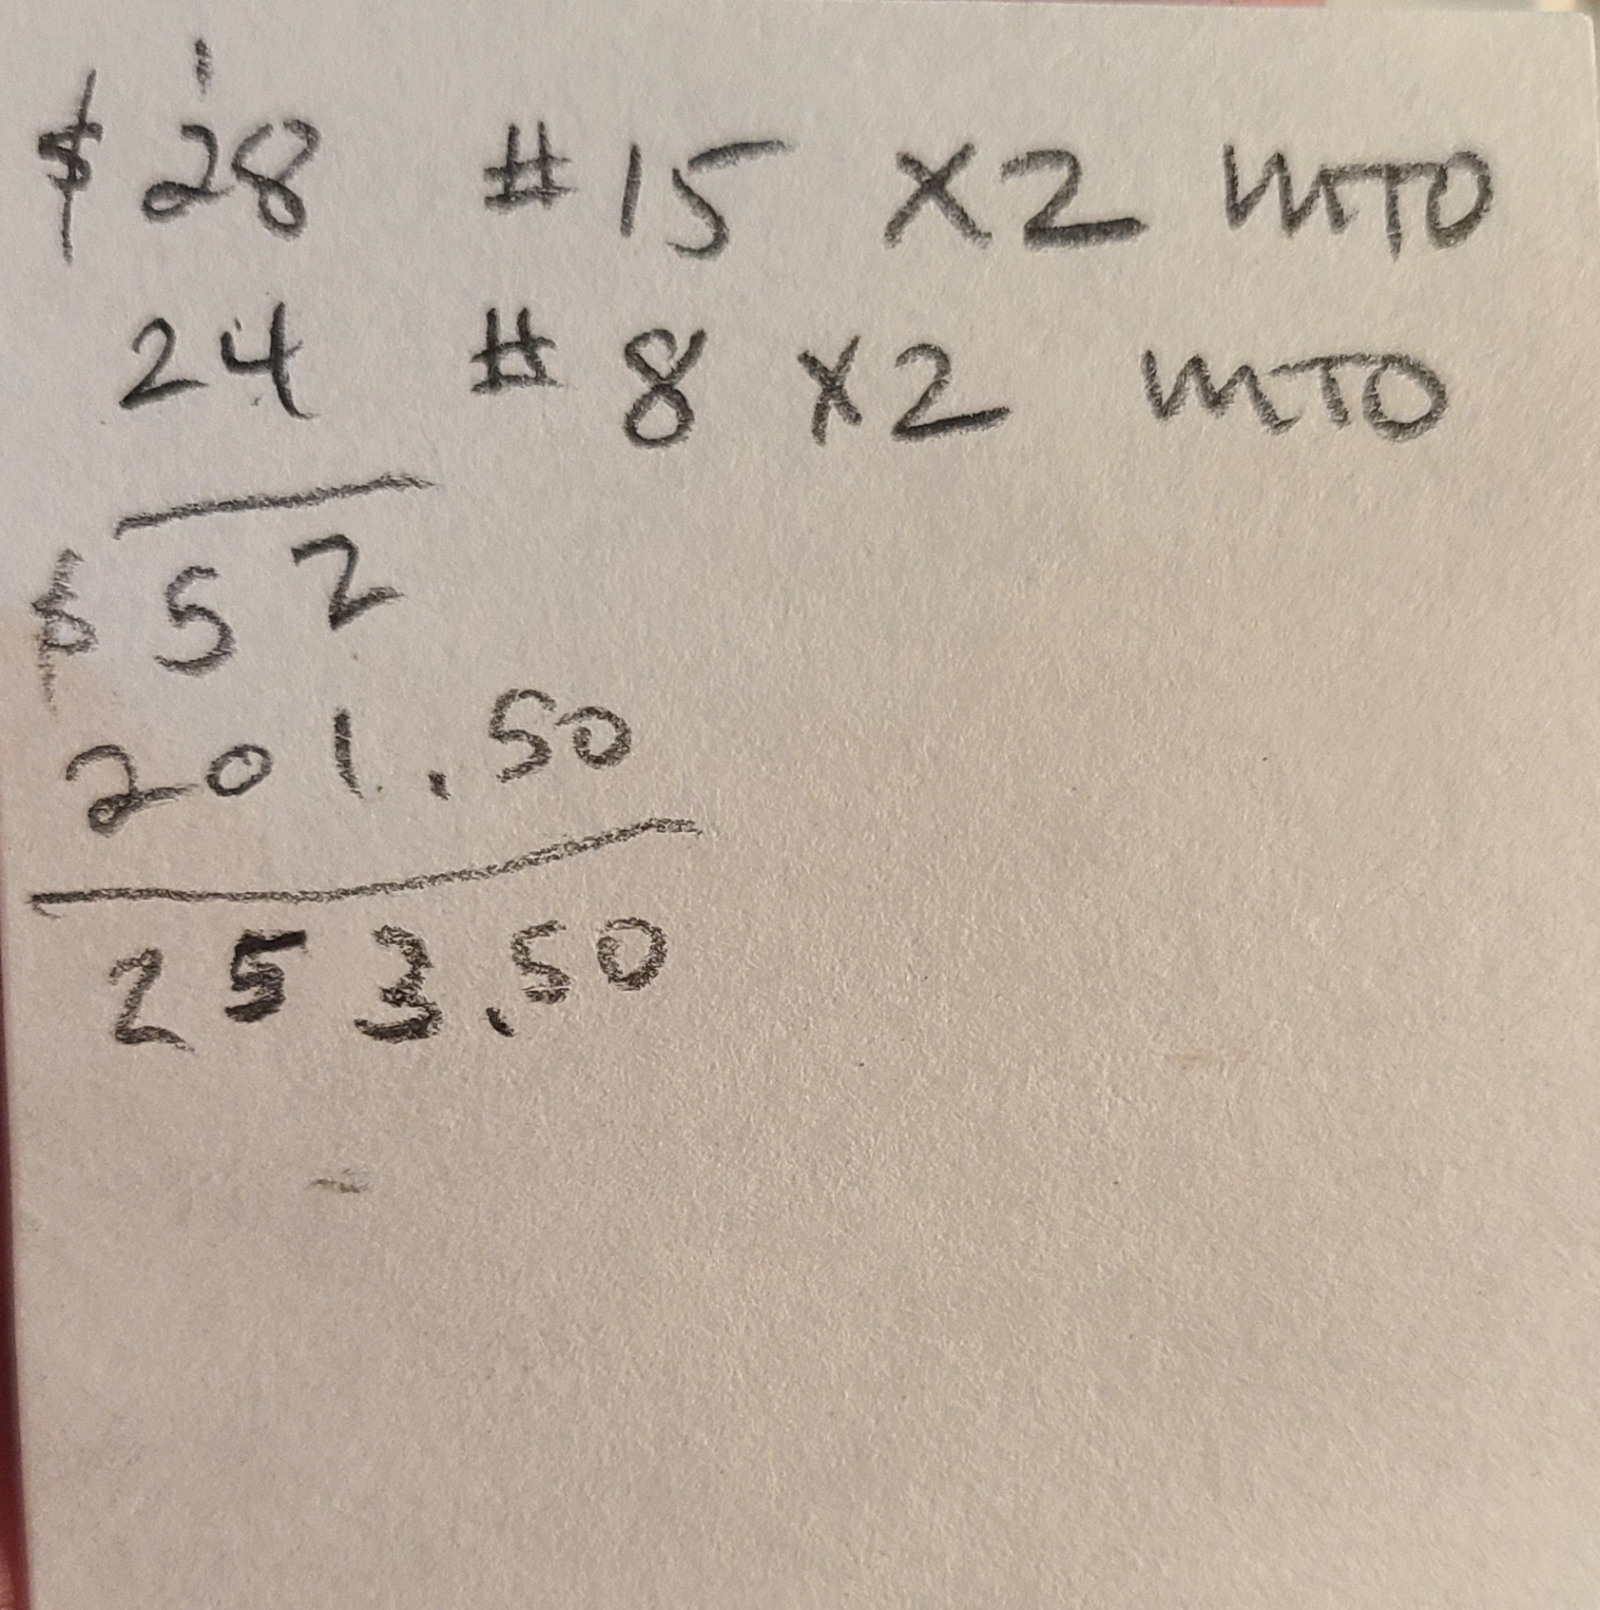 1
$ 28 # 15 X2 MTO
24 # 8 X2 MTO
$ 52
201.50
253.50